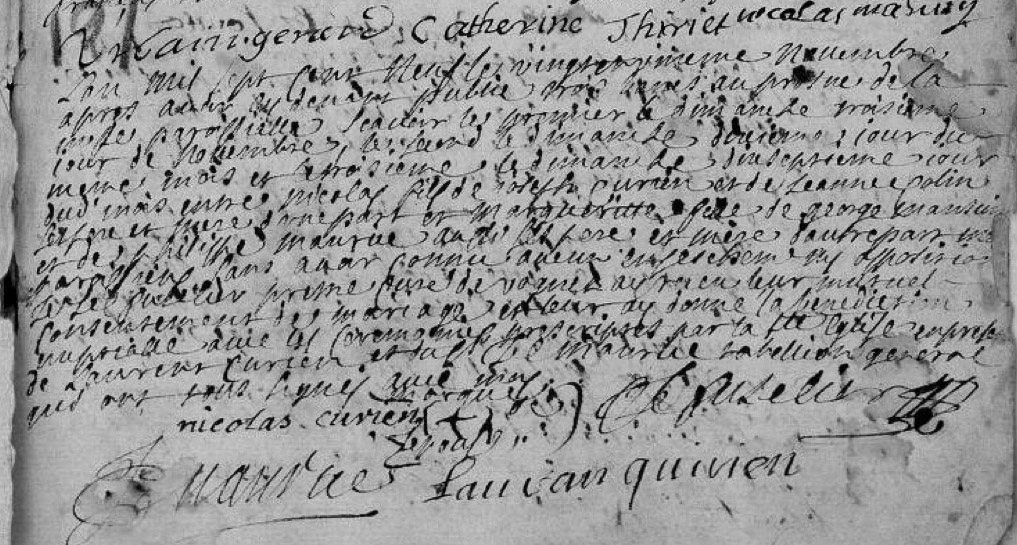 Catherine Thiriet nicolas
L'an mil sept cent neuf le vingtroisieme novembre
apres avoir cy devant publie trois bans au prosne de la
messe paroissielle scavoir le premier le dimanche troisieme
jour de novembre, le second le dimanche dixieme jour du
meme mois et le troisieme le dimanche dixseptieme jour
dud mois entre nicolas fils de joseph curien et de Jeanne colin
ses pere et mere d'une part et margueritte fille de george
et de maurice aussi ses pere et mere d'autre part
parossiens sans avoir connu aucun empeschement ny opposition
pretre cure de ay receu leur mutuel
consentement de mariage et leur ay donné la benediction
nuptialle avec les ceremonies prescriptes par la Ste Eglise en presence
de Laurent Curien et du Sr maurice tabellion general
qui ont sous signes avec moy
nicolas curien marque
l'epouse
maurice Laurean quirien